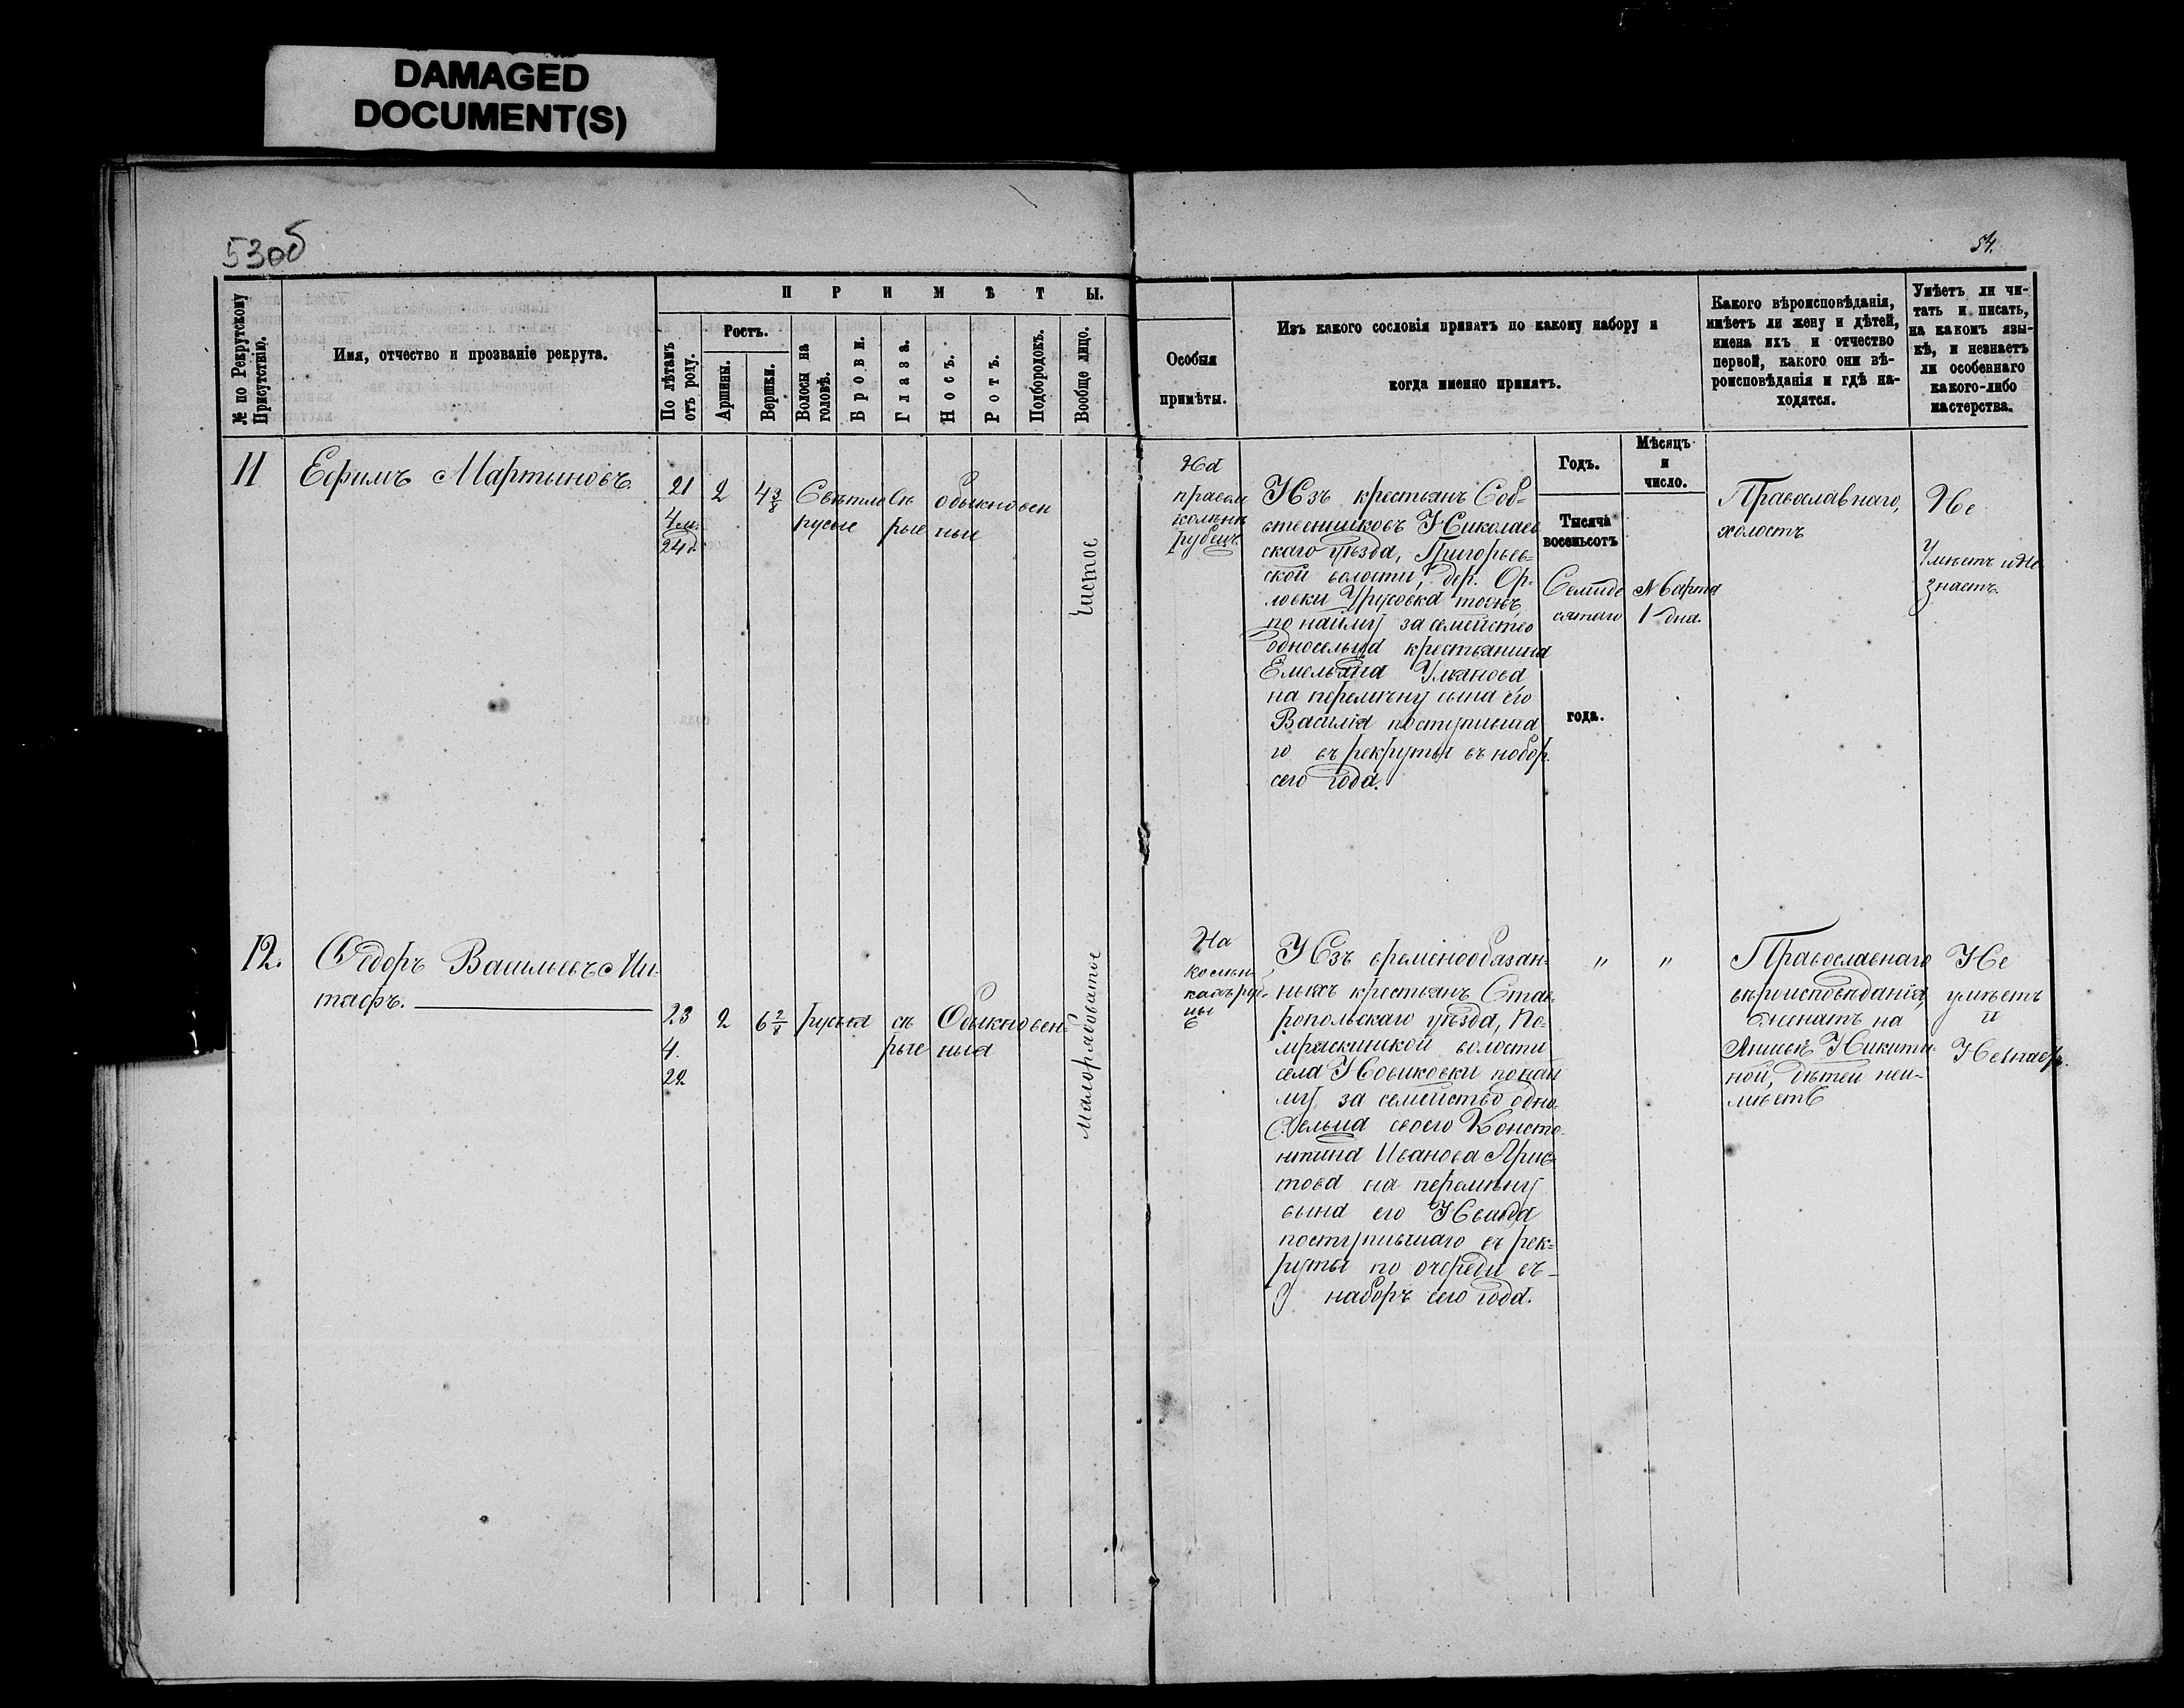 DAMAGED
DOCUMENT(S)
53об
54.
№ по Рекрутскому
Присутствію.
Имя, отчество и прозваніе рекрута.
ПРИМѢТЫ.
По лѣтамъ
отъ роду.
Ростъ.
Аршины.
Вершки.
Волосы на
головѣ.
Брови.
Глаза.
Носъ.
Ротъ.
Подбородокъ.
Вообще лицо.
Особыя
примѣты.
Изъ какого сословія принятъ по какому набору и
когда именно принятъ.
Какого вѣроисповѣданія,
имѣетъ ли жену и дѣтей,
имена ихъ и отчество
первой, какого они вѣ-
роисповѣданія и гдѣ на-
ходятся.
Умѣетъ ли чи-
тать и писать,
на какомъ язы-
кѣ, и незнаетъ
ли особеннаго
какого-либо
мастерства.
11
Ефимъ Мартыновъ
21
4 м.
24 д.
2
4 3/8
Свѣтло
русые
Сѣ
рые
Обыкновен
ные
Чистое
На
правом
колѣнѣ
рубецъ
Изъ крестьянъ Соб-
ственниковъ Николаев
скаго уѣзда, Григорьев-
ской волости, дер. Ор-
ловки Урусовка тожъ,
по найму за семейство
односельца крестьянина
Емельяна Улканова
на перемѣну сына его
Василія поступивша
го въ рекруты въ набор.
сего года.
Годъ.
Тысяча
восемьсотъ
Семиде
сятаго
года.
Мѣсяцъ
и
число.
Марта
1 дня.
Православнаго,
холостъ
Не
Умѣетъ и Не
знаетъ.
12.
Ѳедоръ Васильевъ
тафъ.
23
4.
22
2
6 2/8
русыя
сѣ
рые
Обыкновен-
ныя
Малорябоватое
На
Изъ временнообязан-
ныхъ крестьянъ Став-
ропольскаго уѣзда, По-
мряскинской волости
села Новиковки по най
му за семейство одно-
сельца своего Конста-
нтина Иванова Арис-
това на перемѣну
сына его Ивана
поступившаго въ рек-
руты по очереди въ
наборъ сего года.
"
"
Православнаго
вѣроисповѣданія,
женатъ на
Аксиньѣ Никити-
ной, дѣтей неи-
мѣетъ
Не
умѣетъ
и
Незнаетъ.